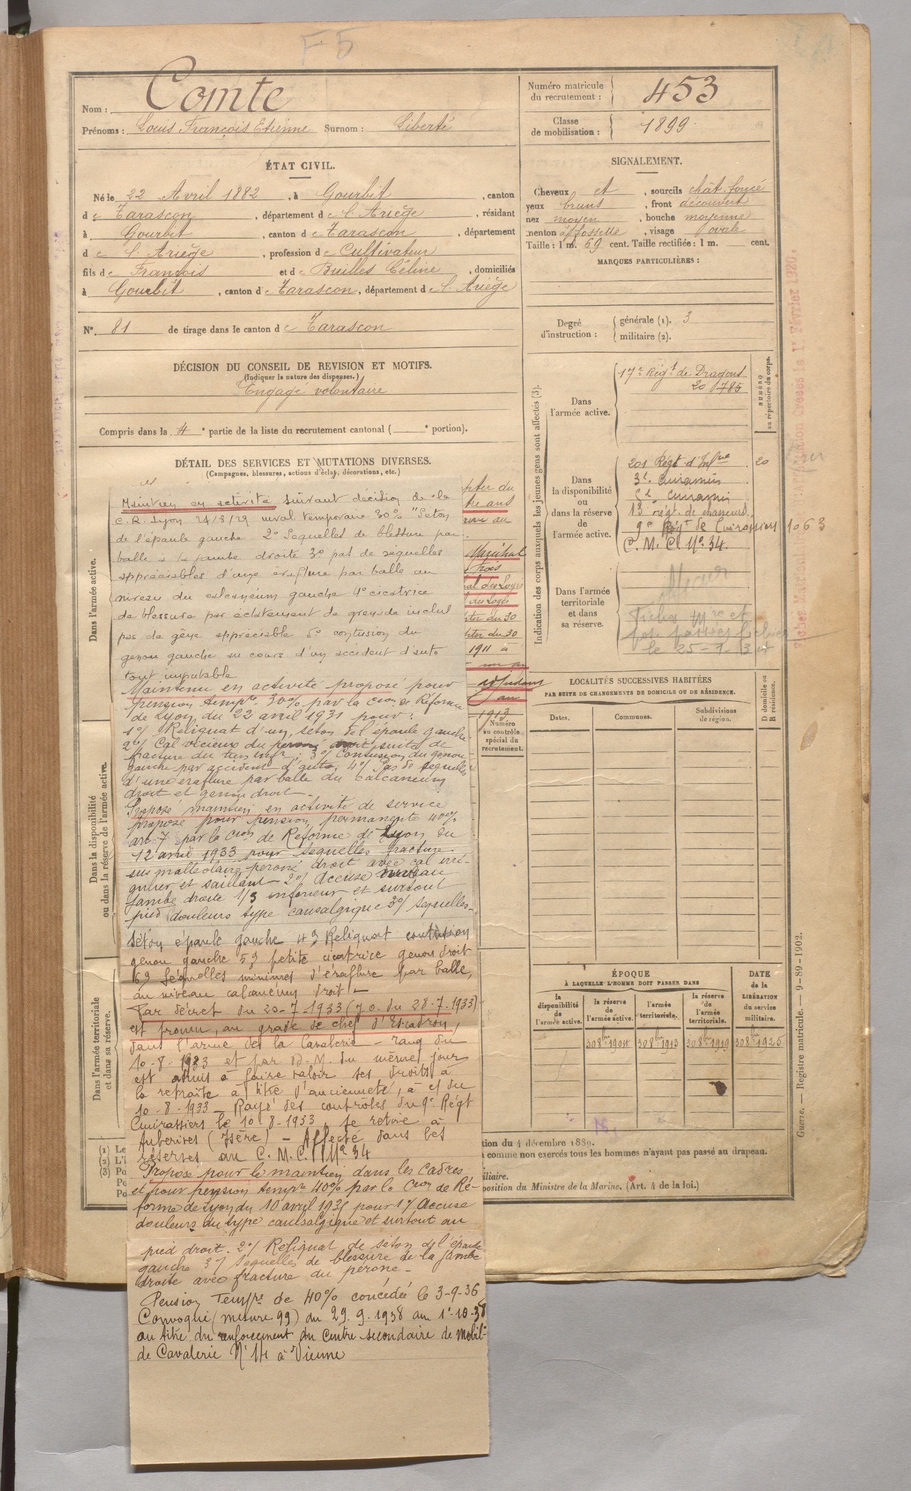 F5
Nom : Comte
Prénoms : Louis François Etienne Surnom : Liberté
Numéro matricule du recrutement : 453
Classe de mobilisation : 1899
ÉTAT CIVIL.
Né le 22 Avril 1882, à Gourbit, canton
de Tarascon, département de l'Ariège, résidant
à Gourbit, canton de Tarascon, département
de l'Ariège, profession de Cultivateur
fils de François et de Builles Céline, domiciliés
à Gourbit, canton de Tarascon, département de l'Ariège
N°. 81 de tirage dans le canton de Tarascon
SIGNALEMENT.
Cheveux ct, sourcils chât. foncé
yeux bruns, front découvert
nez moyen, bouche moyenne
menton à fossette, visage ovale
Taille : 1 m. 69 cent. Taille rectifiée : 1 m. cent.
MARQUES PARTICULIÈRES :
Degré d'instruction : générale (1). 3
militaire (2).
DÉCISION DU CONSEIL DE REVISION ET MOTIFS.
(Indiquer la nature des dispenses.)
Engagé volontaire
Compris dans la 4e partie de la liste du recrutement cantonal ( e portion).
DÉTAIL DES SERVICES ET MUTATIONS DIVERSES.
(Campagnes, blessures, actions d'éclat, décorations, etc.)
Dans l'armée active.
Dans la disponibilité ou dans la réserve de l'armée active.
Dans l'armée territoriale et dans sa réserve.
Maintien en activité suivant décision de la
C.R. Lyon 24/8/29 inval temporaire 30% "Seton
de l'épaule gauche 2° Sequelles de blessure par
balle à la jambe droite 3° pas de sequelles
appréciables d'une éraflure par balle au
niveau du calcaneum gauche 4° cicatrice
de blessure par éclatement de grenade inclut
pas de gêne appréciable 5° contusion du
genou gauche au cours d'un accident d'auto
tout imputable
Maintenu en activité proposé pour
pension tempre 30% par la Cion de Réforme
de Lyon du 22 avril 1931 pour :
1°/ Reliquat d'un séton de l'épaule gauche
2°/ Cal vicieux du péroné droit, suite de
fracture du tiers infr ; 3°/ Contusion du genou
gauche par accident d'auto, 4°/ Pas de séquelles
d'une éraflure par balle du calcaneum
droit et genou droit
Proposé maintien en activité de service
proposé pour pension permanente 40%
art 7 par la Cion de Réforme de Lyon du
12 avril 1933 pour séquelles fracture
sus malléolaire péroné droit avec cal irré-
gulier et saillant 2°/ Accuse niveau
jambe droite 1/3 inférieur et surtout
pied, douleurs type causalgique 3°/ Sequelles
séton épaule gauche 4° Reliquat contusion
genou gauche 5° petite cicatrice genou droit
6° Séquelles minimes d'éraflure par balle,
au niveau calcaneum droit
Par décret du 20-7-1933 (J.O. du 28-7-1933)
est promu, au grade de chef d'Escadrons,
dans l'arme de la Cavalerie - rang du
10-8-1933 et par D.M. du même jour
est admis à faire valoir ses droits à
la retraite à titre d'ancienneté, à c/ du
10-8-1933 Rayé des controles du 9e Régt
Cuirassiers le 10-8-1933. Se retire à
Auberives (Isère) - Affecté dans les
réserves au C.M.C. N° 34
Proposé pour le maintien dans les cadres
et pour pension tempre 40% par la Cion de Ré-
forme de Lyon du 10 avril 1935 pour 1°/ Accuse
douleurs du type causalgique et surtout au
pied droit. 2°/ Reliquat de seton de l'épaule
gauche 3°/ Sequelles de blessure de la jambe
droite avec fracture du péroné -
Pension Tempre de 40% concédée le 3-9-36
Convoqué (mesure 99) du 29.9.1938 au 1-10-38
au titre du renforcement du Centre secondaire de Mobil-
de Cavalerie N° 14 à Vienne
Maréchal
trois
1911 à
1913
Numéro au contrôle spécial du recrutement.
Indication des corps auxquels les jeunes gens sont affectés (3).
Dans l'armée active.
17e Régt de Dragons
20 1785
NUMÉRO au répertoire du corps.
Dans la disponibilité ou dans la réserve de l'armée active.
201 Régt d'Infrie 20
3e Cuirassiers
2e Cuirassiers
13 régt de chasseurs
9e Régt de Cuirassiers 1063
C.M.C. N° 34.
Dans l'armée territoriale et dans sa réserve.
le 25-9
LOCALITÉS SUCCESSIVES HABITÉES
PAR SUITE DE CHANGEMENTS DE DOMICILE OU DE RÉSIDENCE.
Dates. Communes. Subdivisions de région. D domicile ou R résidence.
ÉPOQUE
À LAQUELLE L'HOMME DOIT PASSER DANS
la disponibilité de l'armée active. la réserve de l'armée active. l'armée territoriale. la réserve de l'armée territoriale.
DATE de la LIBÉRATION du service militaire.
30 8bre 1904 30 8bre 1913 30 8bre 1919 30 8bre 1926
tion du 4 décembre 1889.
comme non exercés tous les hommes n'ayant pas passé au drapeau.
iliaire.
position du Ministre de la Marine. (Art. 4 de la loi.)
Guerre. — Registre matricule. — 9-89-1902.